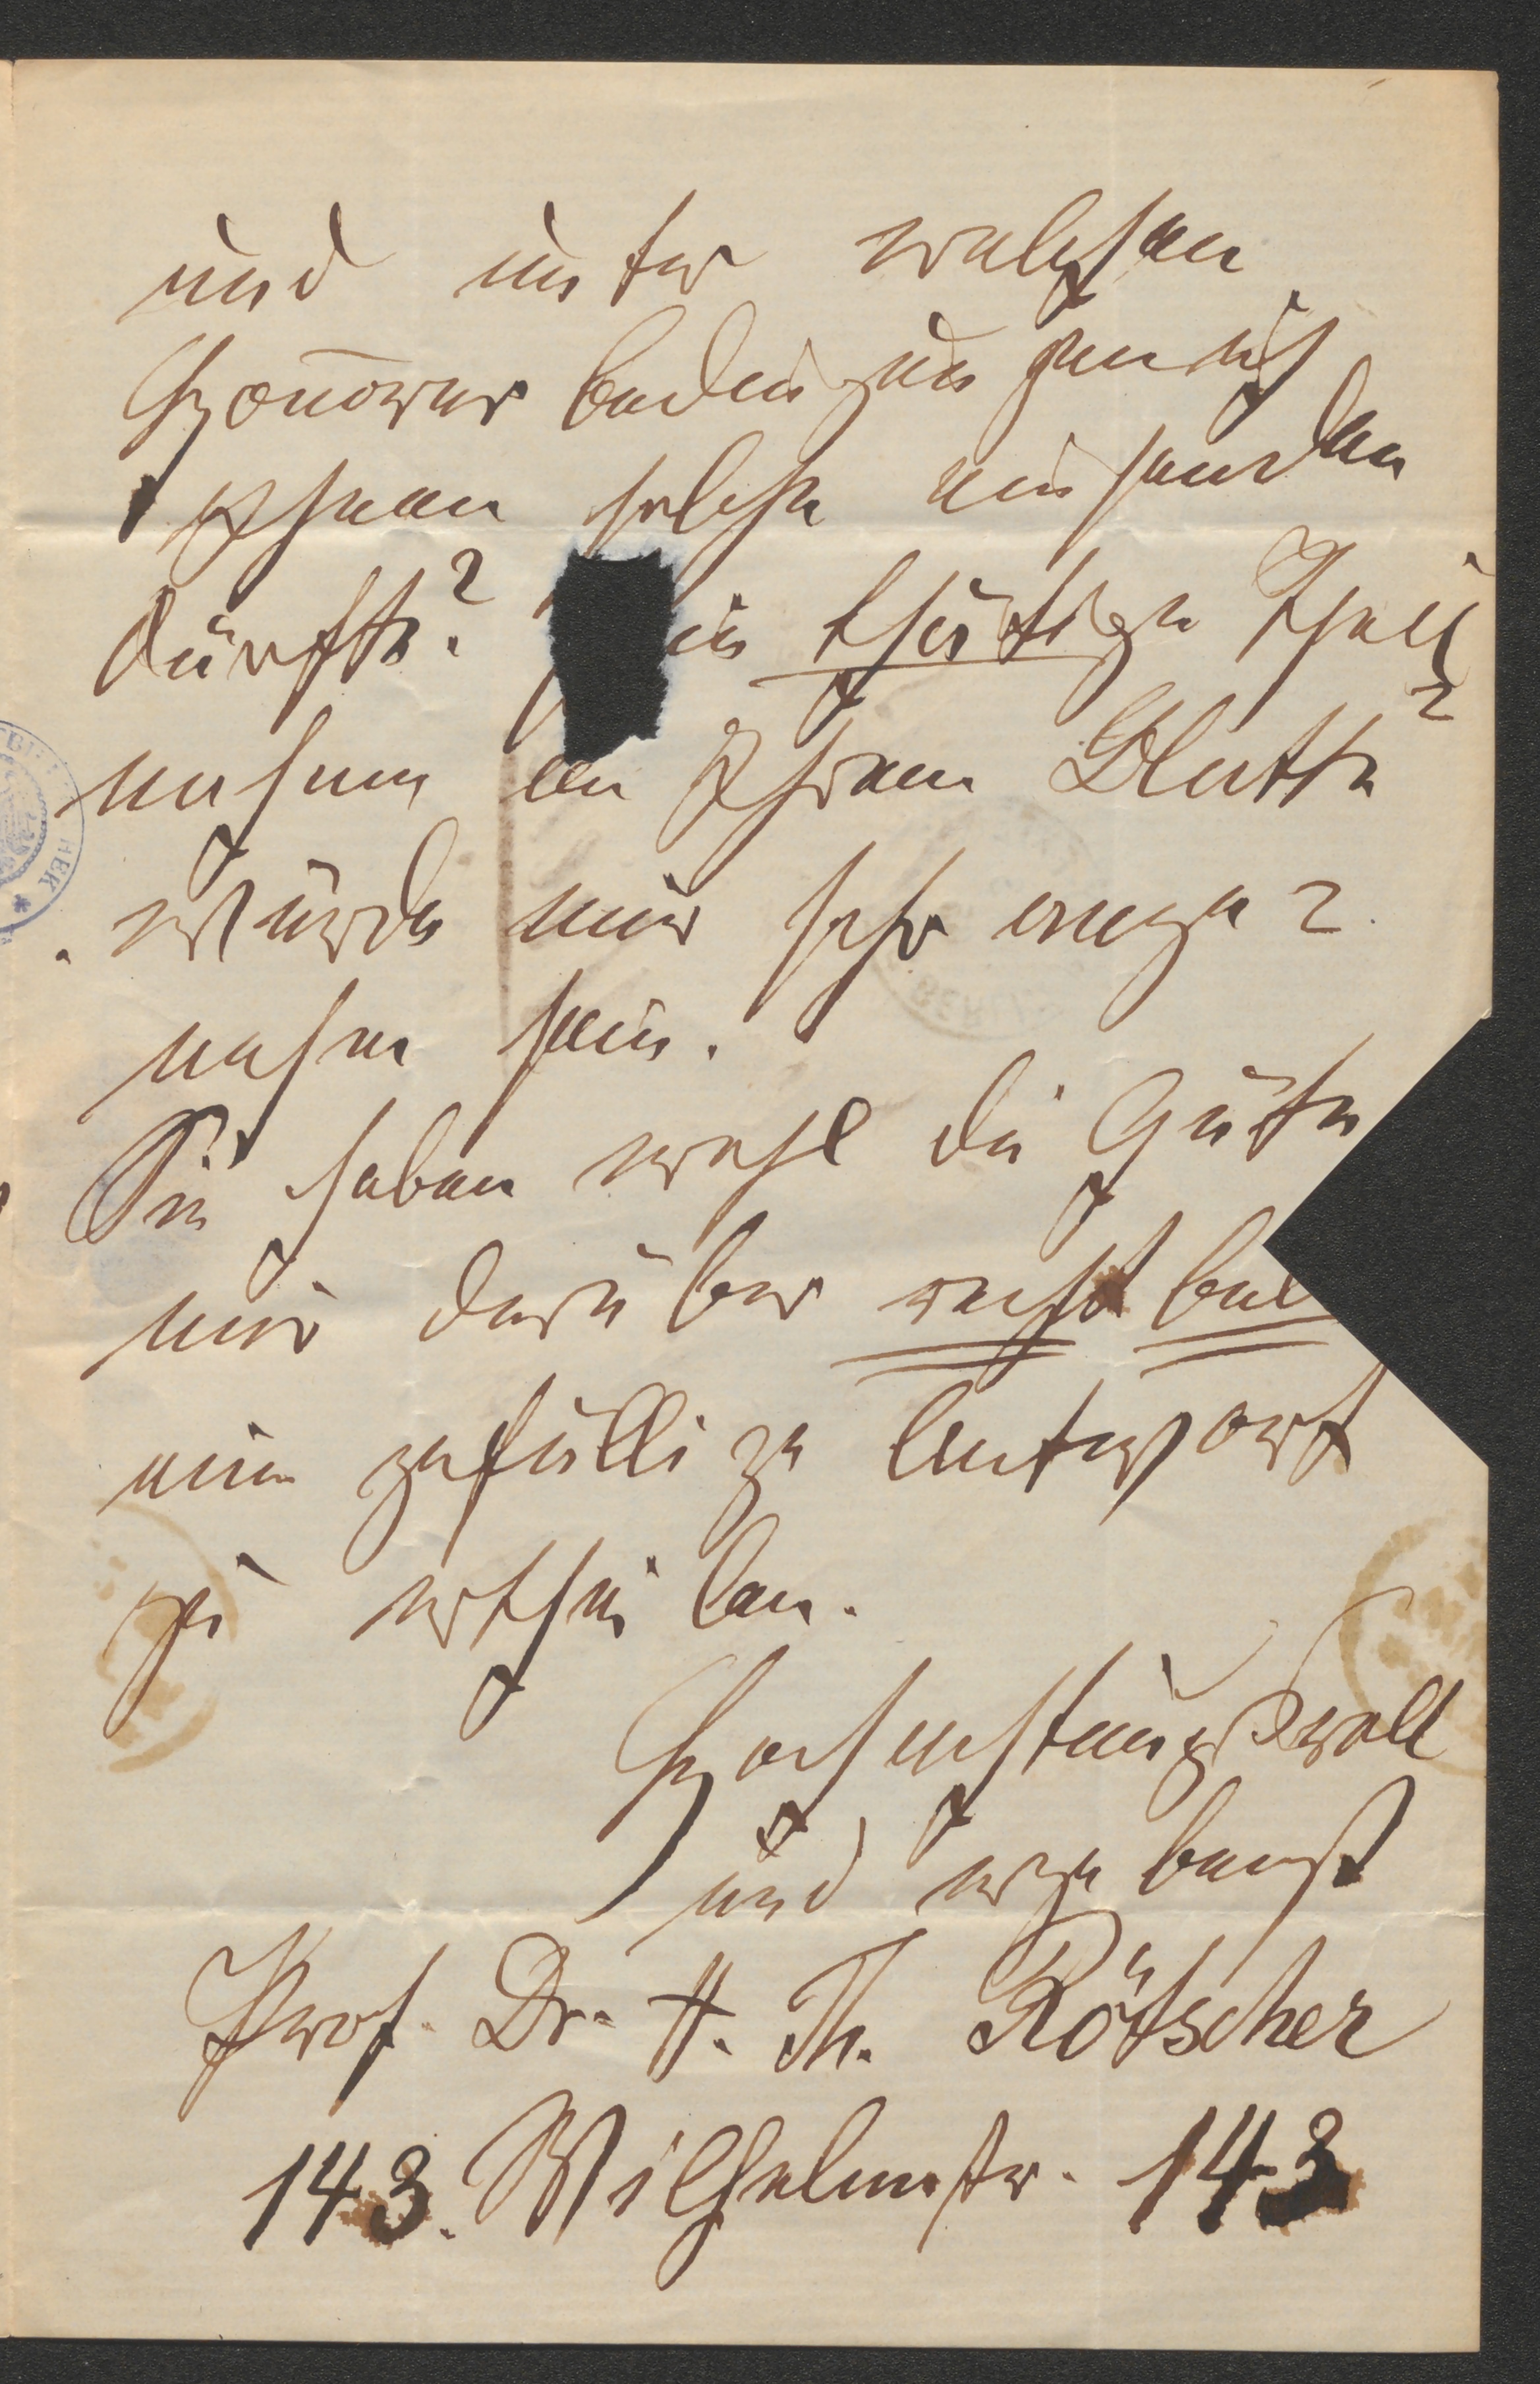 und unter welchen
Honorarbedingungen ich
Ihnen solche einsenden
dürfte? in thätige Theil=
nahme an Ihrem Blatte
würde mir sehr ange=
nehm sein.
Sie haben wohl die Güte
mir darüber recht bal
eine gefällige Antwort
zu ertheilen.
Hochachtungsvoll
und ergebenst
Prof. Dr. H. Th. Rötscher
143. Wilhelmstr. 143